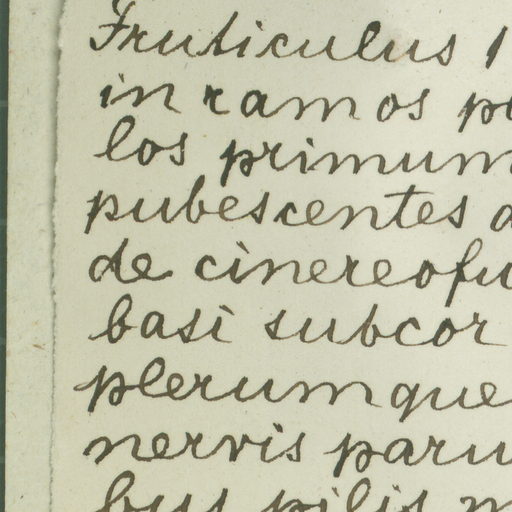 Fruticulus 1
in ramos pl
los primum
pubescentes
de cinereofu
basi subcor
plerumque
nervis paru
bus pilis